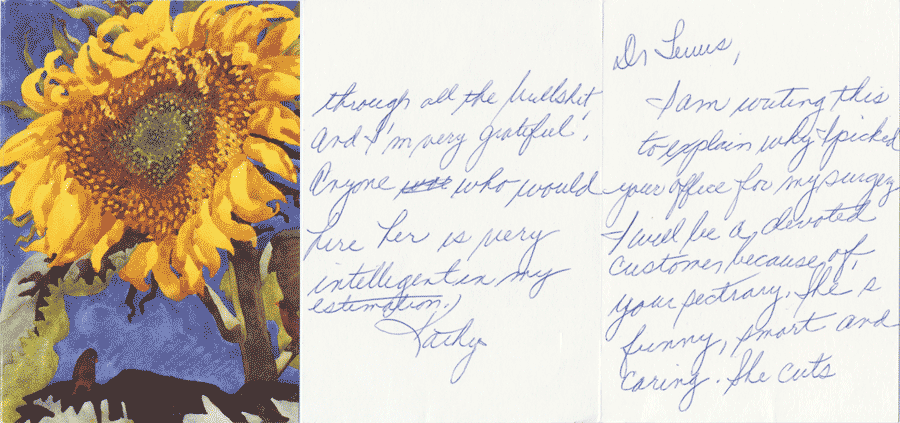 Dr Lewis,
I am writing this
to explain why I picked
your office for my surgey
I will be a devoted
customer because of
your sectrary. She is
funny, smart and
caring. She cuts
through all the bullshit,
and I'm very grateful.
Anyone who would
hire her is very
intelligent in my
estimation.)
Kathy